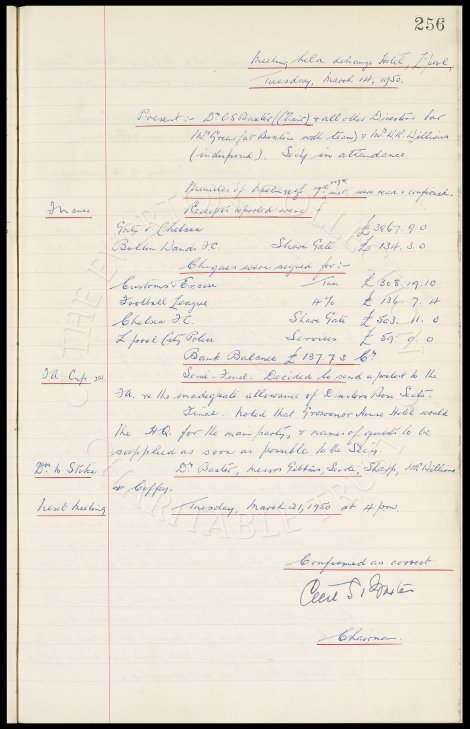 256
Meeting held Exchange Hotel, L'pool,
Tuesday, March 1st, 1950.
Present :- Dr C S Baxter (Chair) & all other Directors bar
Mr Green (at Buxton with team) & Mr W.R Williams
(indisposed). Secy in attendance.
Minutes of Meeting of 7th were read & confirmed.
Finance
Receipts reported were :-
Gate v Chelsea £3867. 9. 0
Bolton Wands F.C. Share Gate £ 134. 3. 0
Cheques were signed for:-
Customs & Excise Tax £ 308. 19. 10
Football League 4% £ 136. 7. 4
Chelsea F.C. Share Gate £ 503. 11. 0
L'pool City Police Services £ 59. 9. 0
Bank Balance £ 13773 Cr
F.A. Cup
Semi-Final. Decided to send a protest to the
F.A. re the inadequate allowance of Directors Box Seats.
Final. Noted that Grosvenor House Hotel would
be H.Q. for the main party, & names of guests to be
supplied as soon as possible to the Secy.
Dtrs to Stoke
Dr Baxter, Messrs Gibbins, Searle, Sharp, W.R Williams
or Coffey.
Next Meeting
Tuesday, March 21, 1950 at 4 pm
Confirmed as correct
Cecil S. Baxter
Chairman.
THE EVERTON COLLECTION
CHARITABLE TRUST